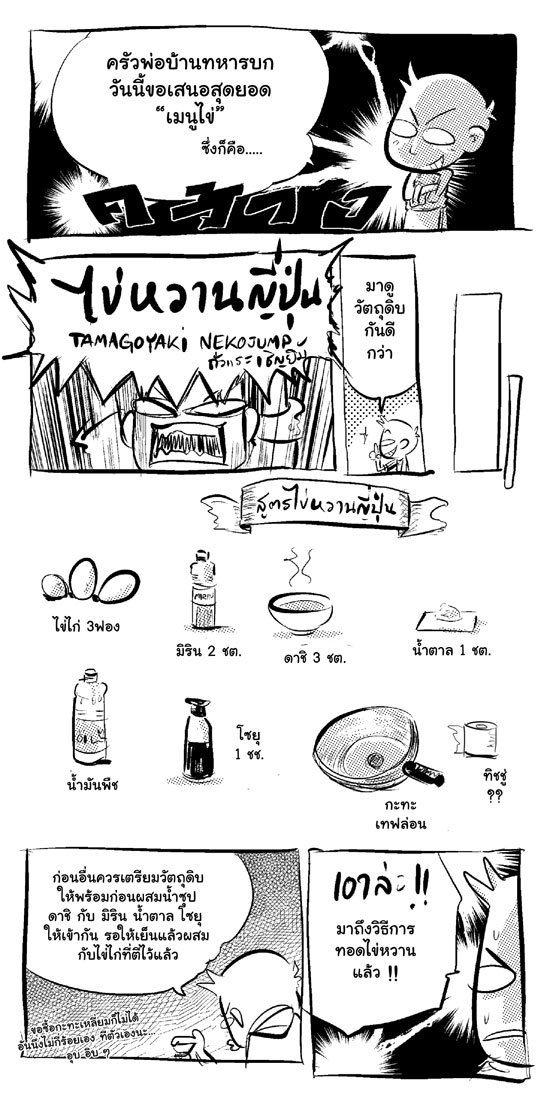 ครัวพ่อบ้านทหารบก
วันนี้ขอเสนอสุดยอด
“เมนูไข่”
ซึ่งก็คือ.....
ไข่หวานญี่ปุ่น
TAMAGOYAKI NEKOJUMP
มาดู
วัตถุดิบ
กันดี
กว่า
สูตรไข่หวานญี่ปุ่น
ไข่ไก่ 3ฟอง
มิริน 2 ชต.
ดาชิ 3 ชต.
น้ำตาล 1 ชต.
OIL
น้ำมันพืช
โชยุ
1 ชช.
กะทะ
เทฟล่อน
ทิชชู่
??
ก่อนอื่นควรเตรียมวัตถุดิบ
ให้พร้อมก่อนผสมน้ำซุป
ดาชิ กับ มิริน น้ำตาล โชยุ
ให้เข้ากัน รอให้เย็นแล้วผสม
กับไข่ไก่ที่ตีไว้แล้ว
ขอซื้อกะทะเหลี่ยมก็ไม่ได้
อันนึงไม่กี่ร้อยเอง ที่ตัวเองนะ...
อุบ อิบ ๆ
เอาล่ะ!!
มาถึงวิธีการ
ทอดไข่หวาน
แล้ว !!